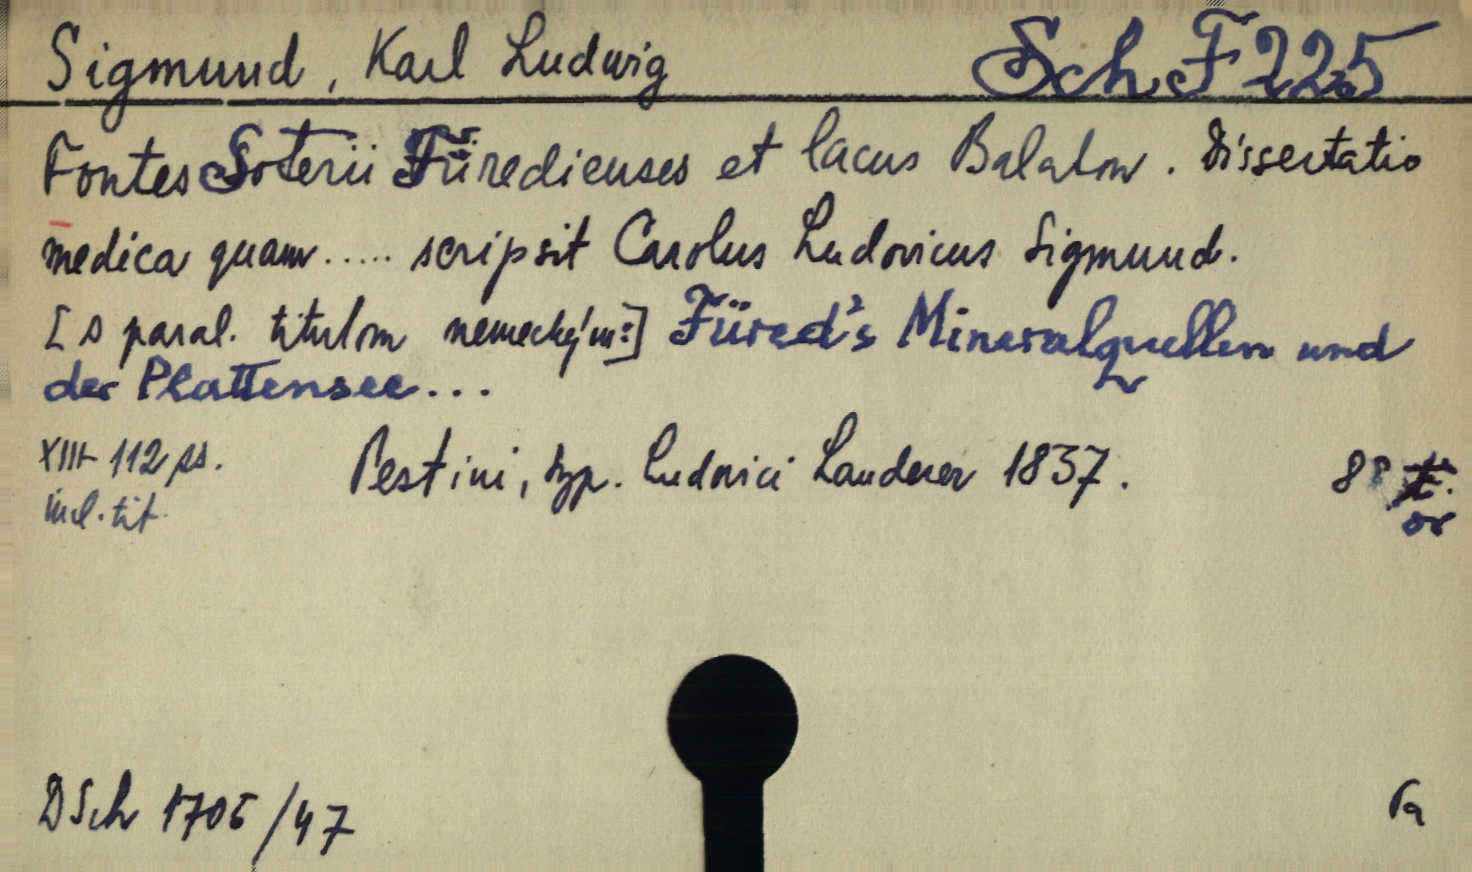 Sigmund, Karl Ludwig Sch F 225
Fontes Soterii Füredienses et lacus Balaton. Dissertatio
medica quam ..... scripsit Carolus Ludovicus Sigmund.
[s paral. titulom nemeckým:] Füred's Mineralquellen und
der Plattensee...
XIII-112 ss. Pestini, typ. Ludovici Landerer 1837. 8°
incl. tit.
DSch 1706/47